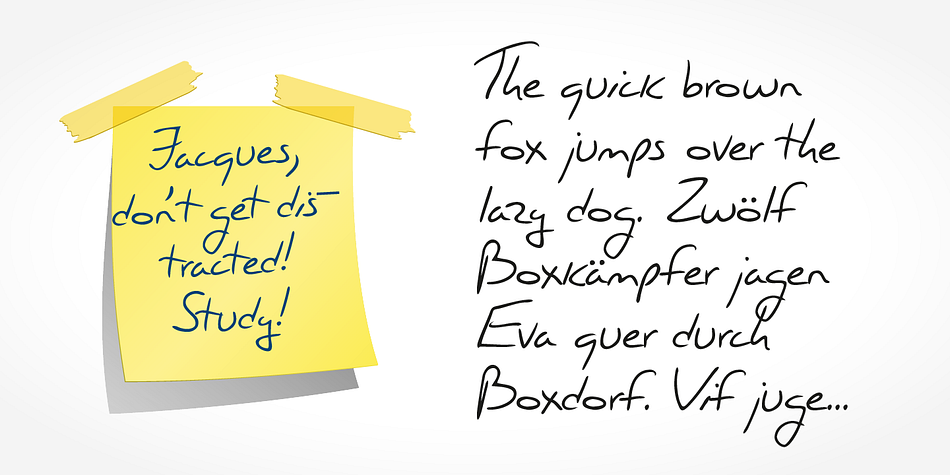 Jacques,
don't get dis-
tracted!
Study!
The quick brown
fox jumps over the
lazy dog. Zwölf
Boxkämpfer jagen
Eva quer durch
Boxdorf. Vif juge...